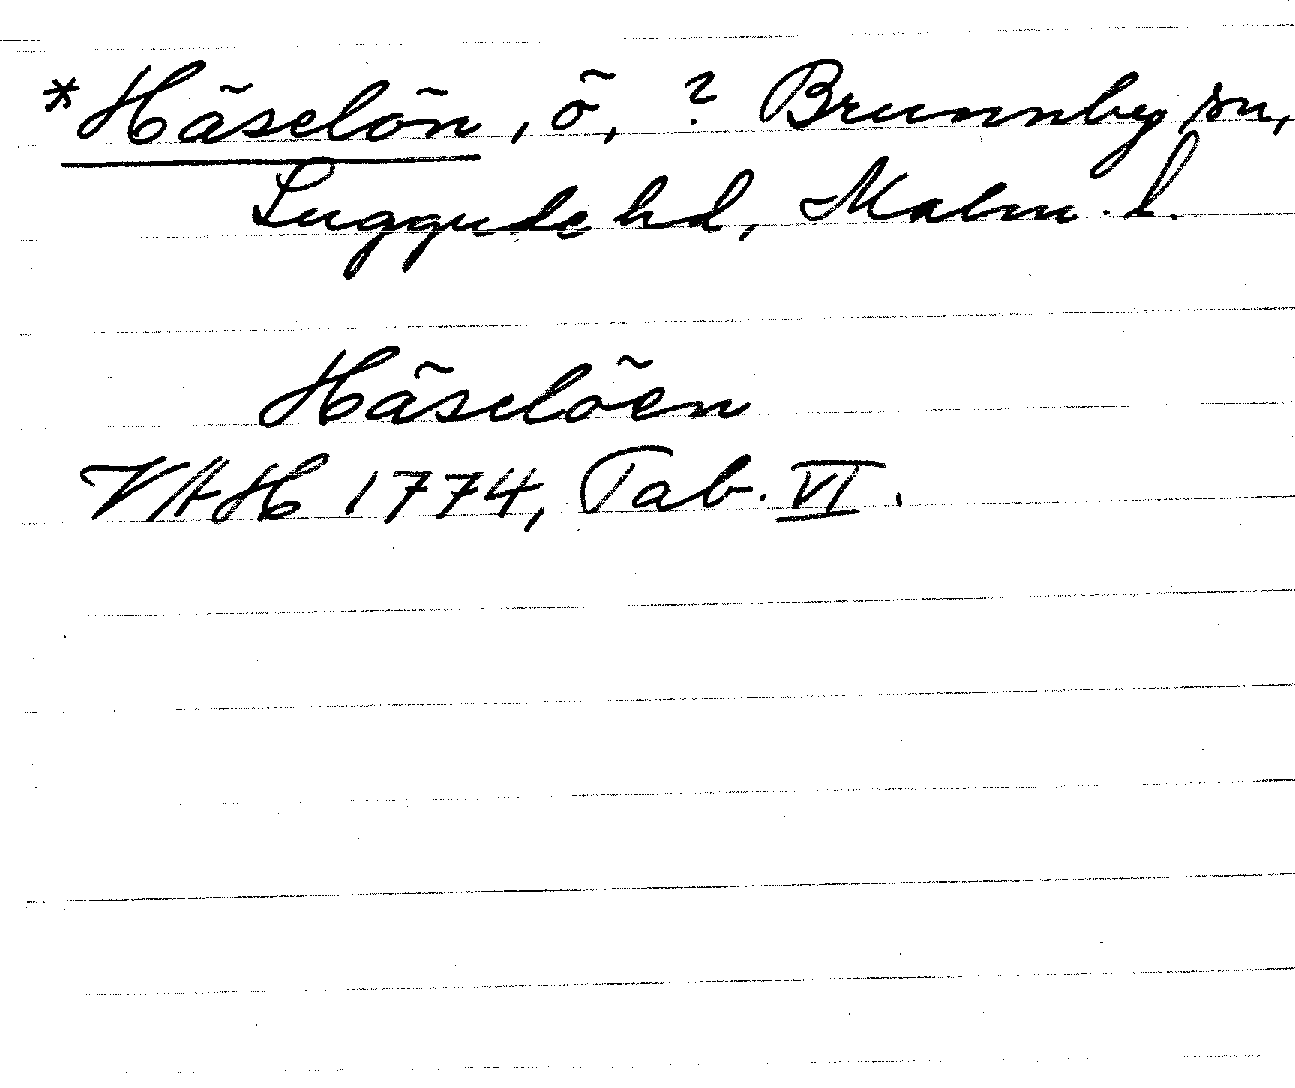 *Häselön, ö, ? Brunnby sn,
Luggude hd, Malm. l.
Häselöen
VAH 1774, Tab. VI.